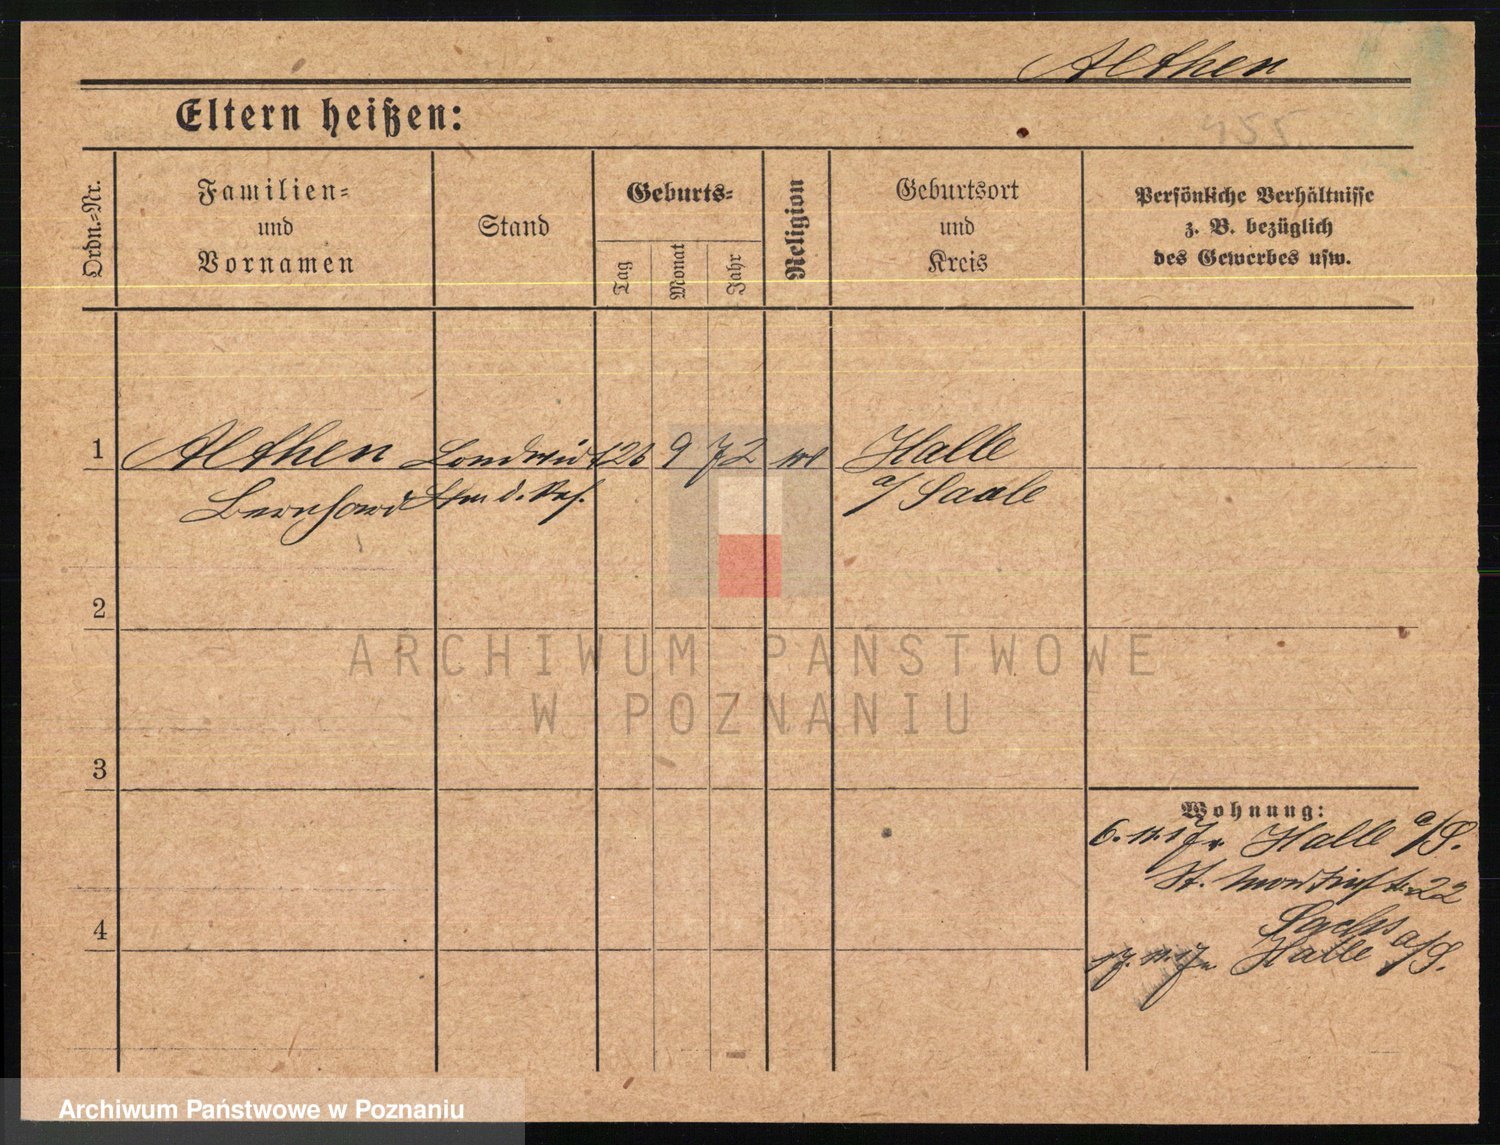 Althen
Eltern heißen:
455.
Ordn.-Nr.
Familien-
und
Vornamen
Stand
Geburts-
Tag
Monat
Jahr
Religion
Geburtsort
und
Kreis
Persönliche Verhältnisse
z. B. bezüglich
des Gewerbes usw.
1
Althen
Landwirt
26 9 72
Halle
Bernhard
a/Saale
2
3
4
Wohnung:
6. 11. 17 Halle a/S.
22
17. 11. 17 Halle a/S.
ARCHIWUM PAŃSTWOWE
W POZNANIU
Archiwum Państwowe w Poznaniu